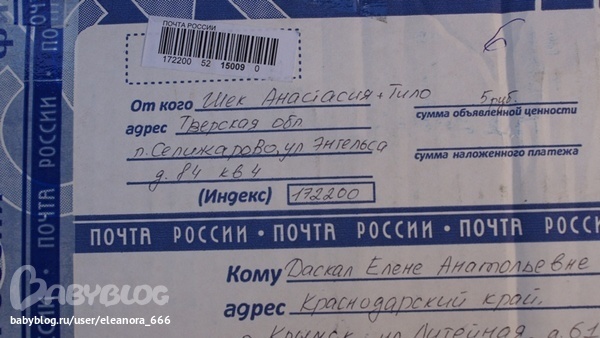 ПОЧТА РОССИИ
172200 52 15009 0
От кого Шек Анастасия + Тило
5 руб.
сумма объявленной ценности
адрес Тверская обл
п. Селижарово, ул Энгельса
сумма наложенного платежа
д. 84 кв 4
(Индекс) 172200
ПОЧТА РОССИИ
ПОЧТА РОССИИ • ПОЧТА РОССИИ • ПОЧТА РОССИИ
Кому Даскал Елене Анатольевне
адрес Краснодарский край,
г. Крымск, ул Литейная, д. 61
BABYBLOG
babyblog.ru/user/eleanora_666